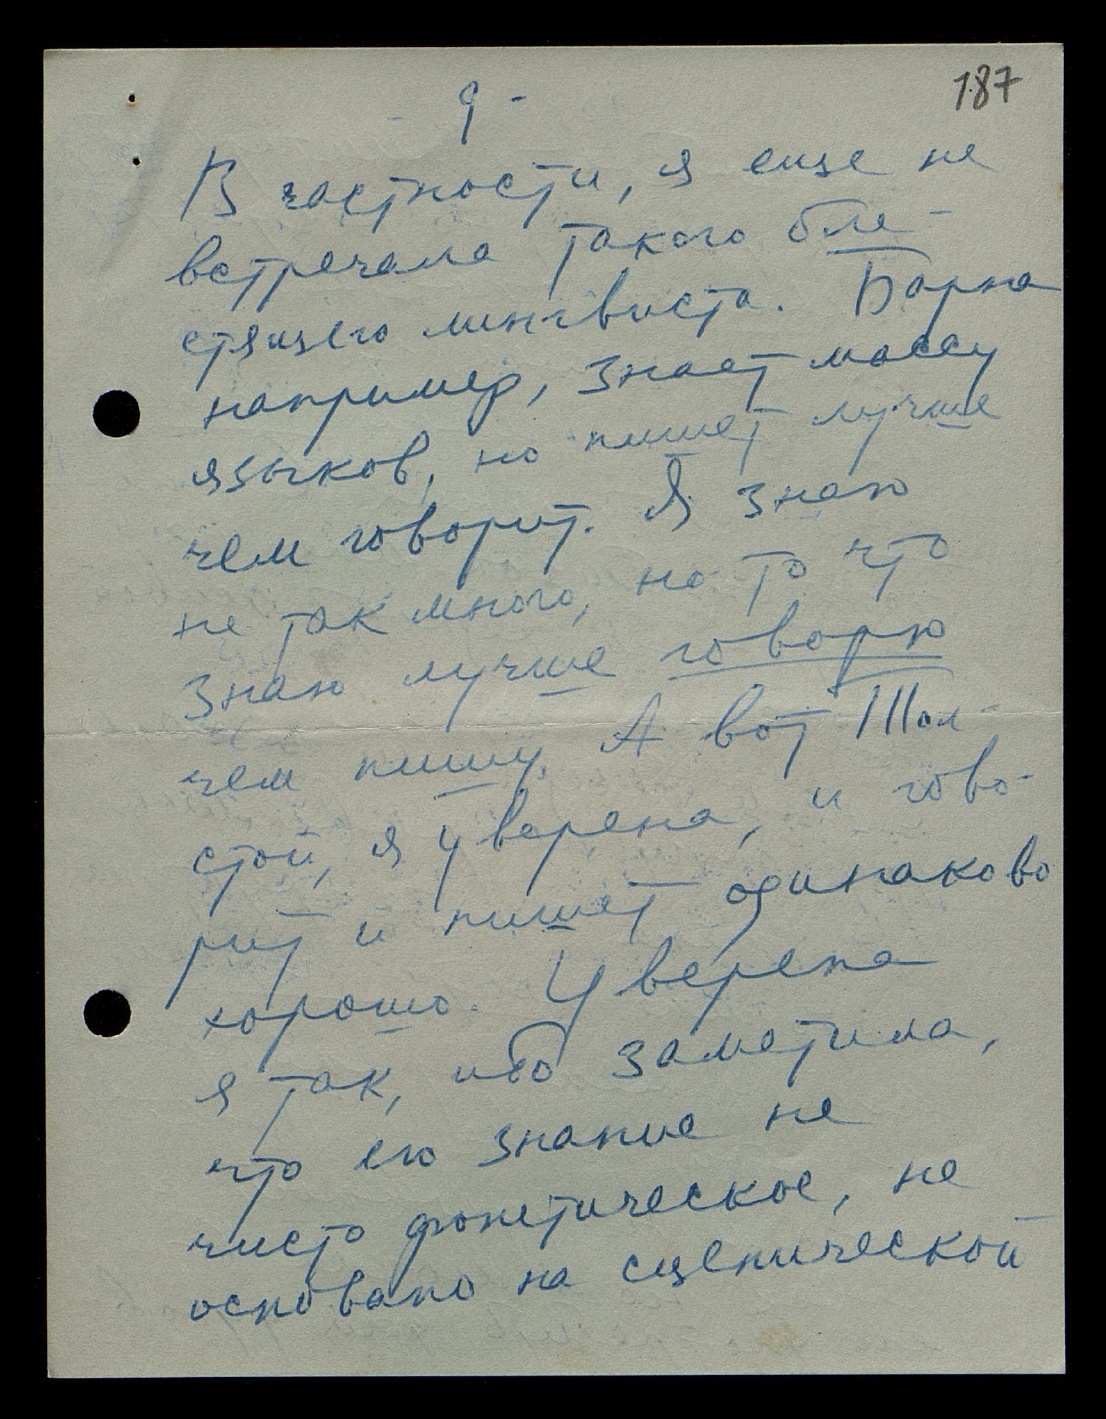 - 9 -
187
В частности, я еще не
встречала такого бле-
стящего лингвиста. Барна
например, знает массу
языков, но пишет лучше
чем говорит. Я знаю
не так много, но то что
знаю лучше говорю
чем пишу. А вот Шол-
стой, я уверена, и гово-
рит и пишет одинаково
хорошо. Уверена
я так, ибо заметила,
что его знание не
чисто фонетическое, не
основано на сценической